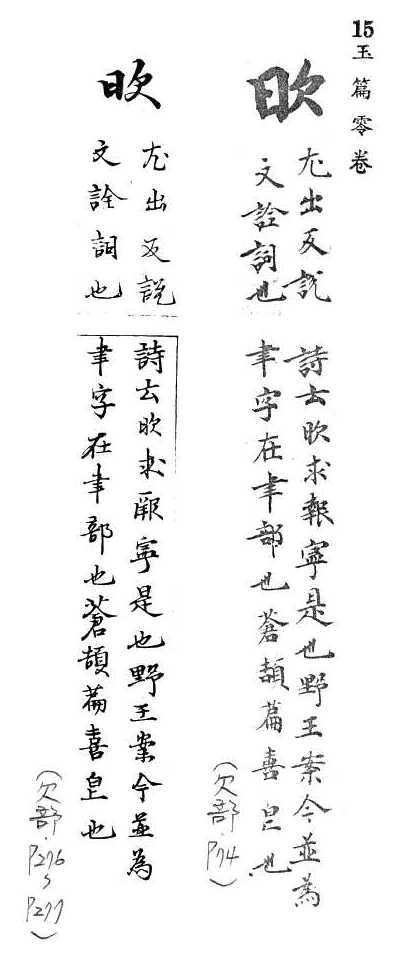 15玉篇零卷
欥
尤出反説詩云欥求報寧是也野王案今並為
文詮詞也聿字在聿部也蒼頡篇喜皃也
(欠部·P74)
欥
尤出反説詩云欥求厥寧是也野王案今並為
文詮詞也聿字在聿部也蒼頡篇喜皃也
(欠部·P276~P277)